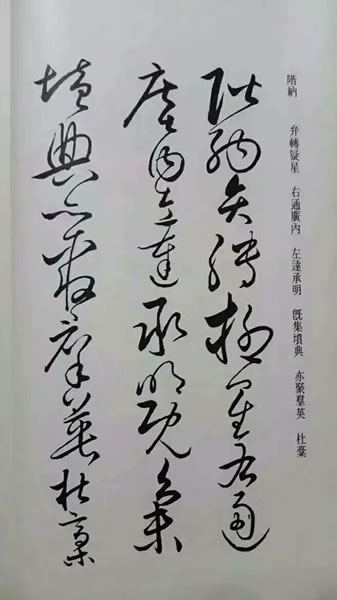 階納 弁轉疑星 右通廣內 左達承明 旣集墳典 亦聚羣英 杜稾
階納弁轉疑星右通
廣內左達承明旣集
墳典亦聚羣英杜稾